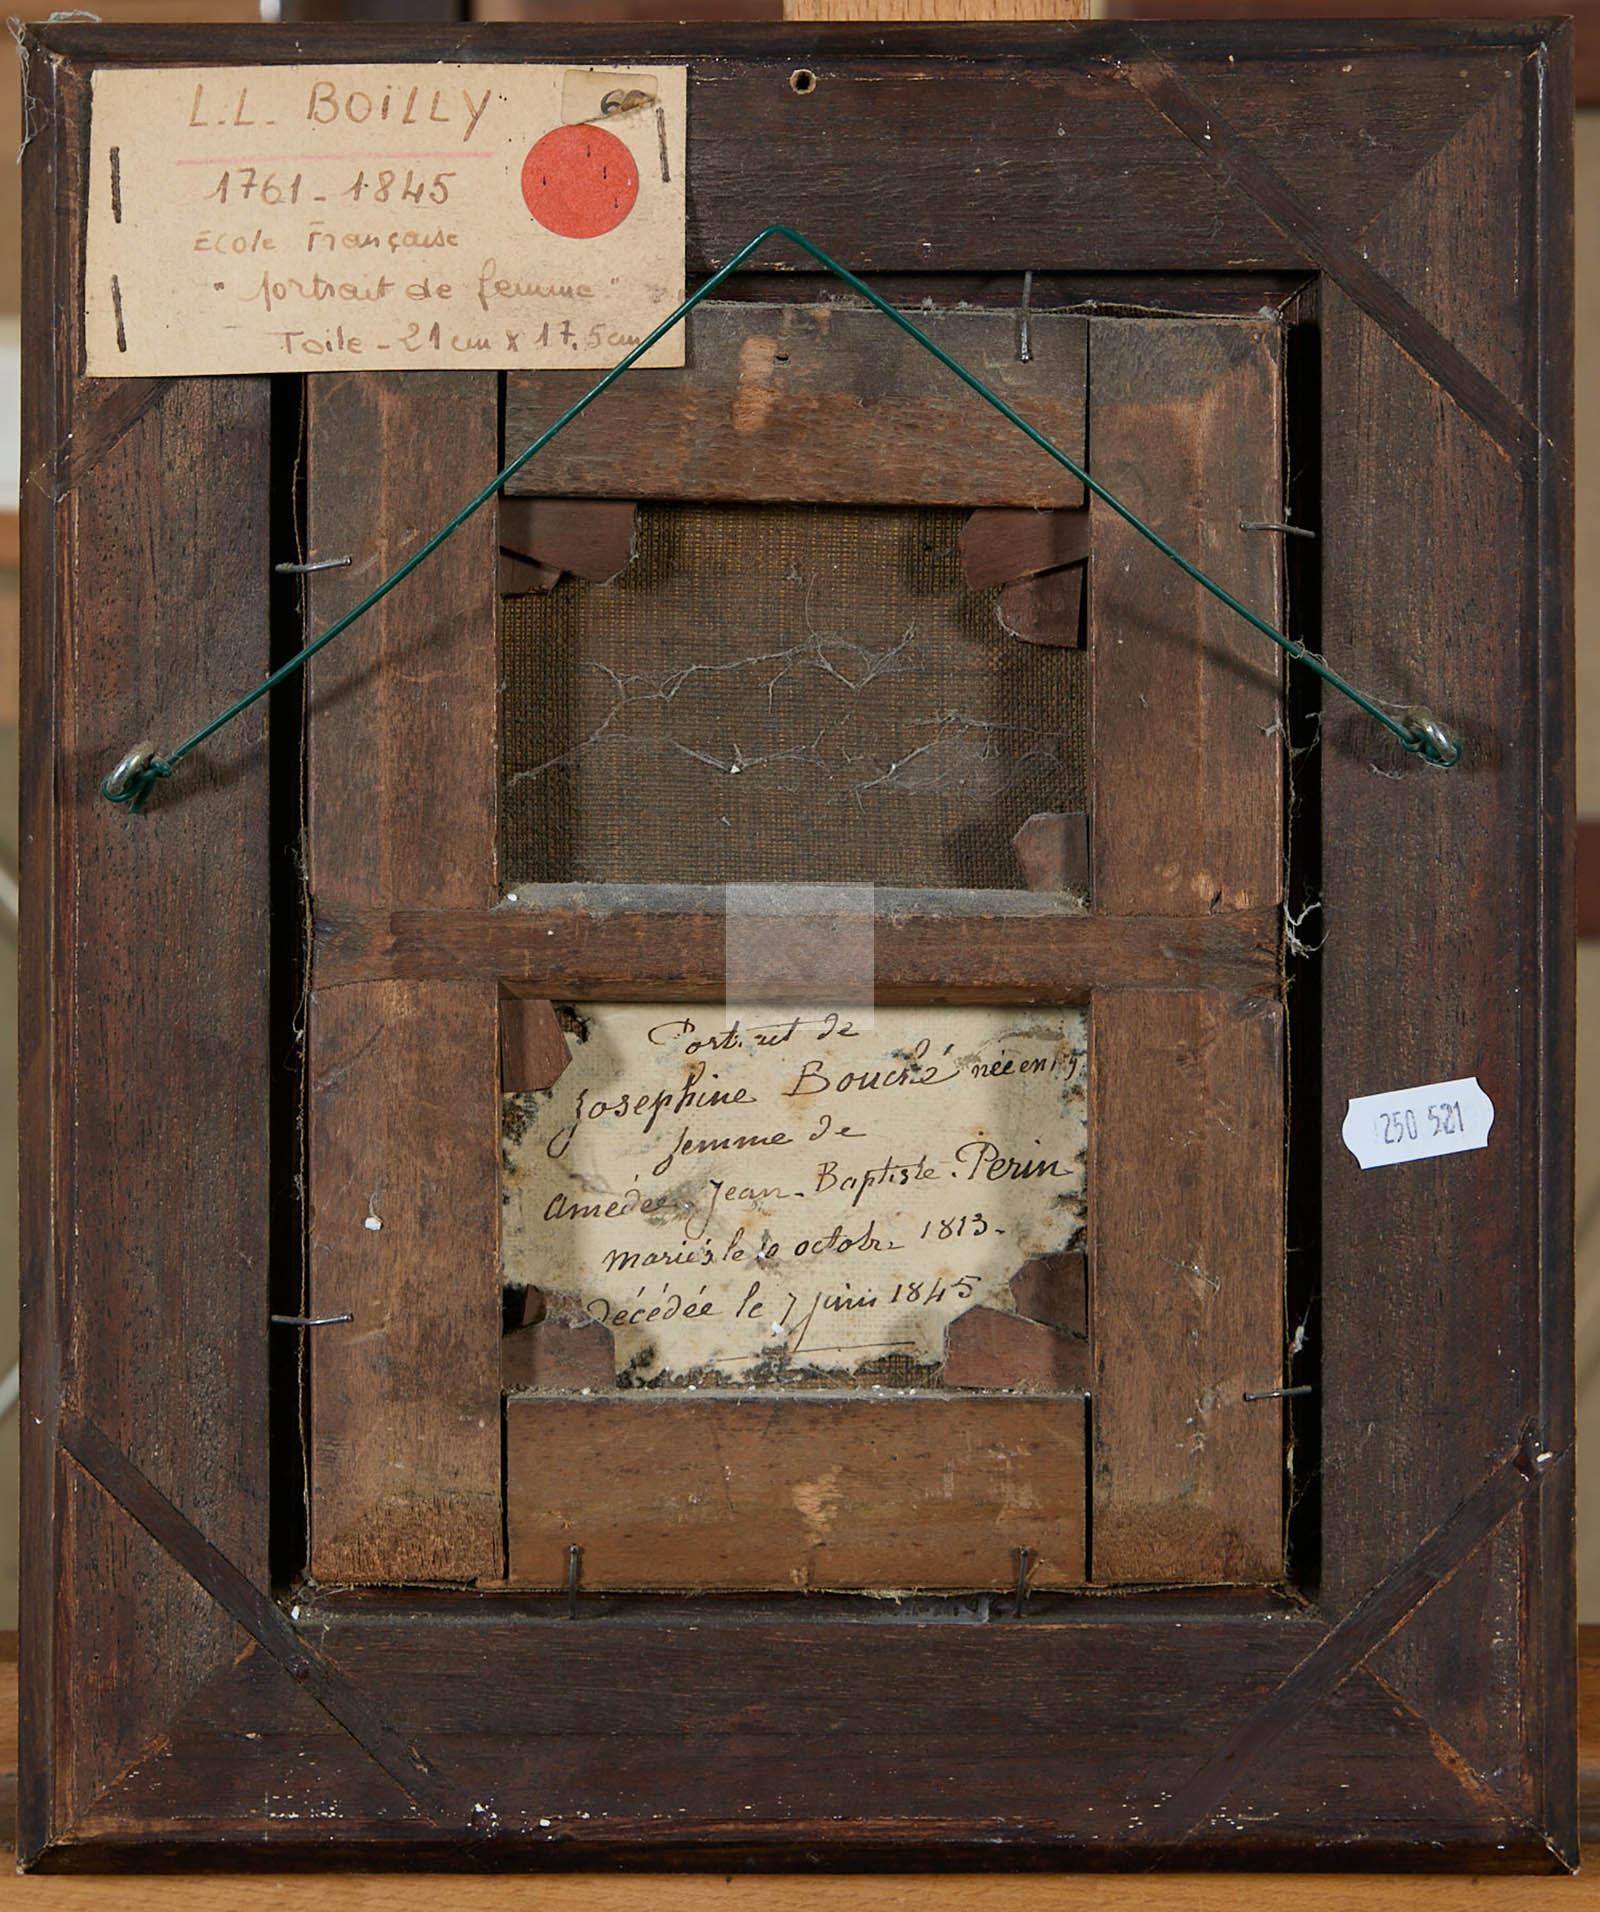 L.L. BOILLY
60
1761-1845
École Française
"portrait de femme"
Toile - 21 cm x 17,5 cm
Portrait de
Josephine Bouché née en
femme de
Amédée. Jean-Baptiste. Perin
mariés le 10 octobre 1813-
Décédée le 7 juin 1845
250 521